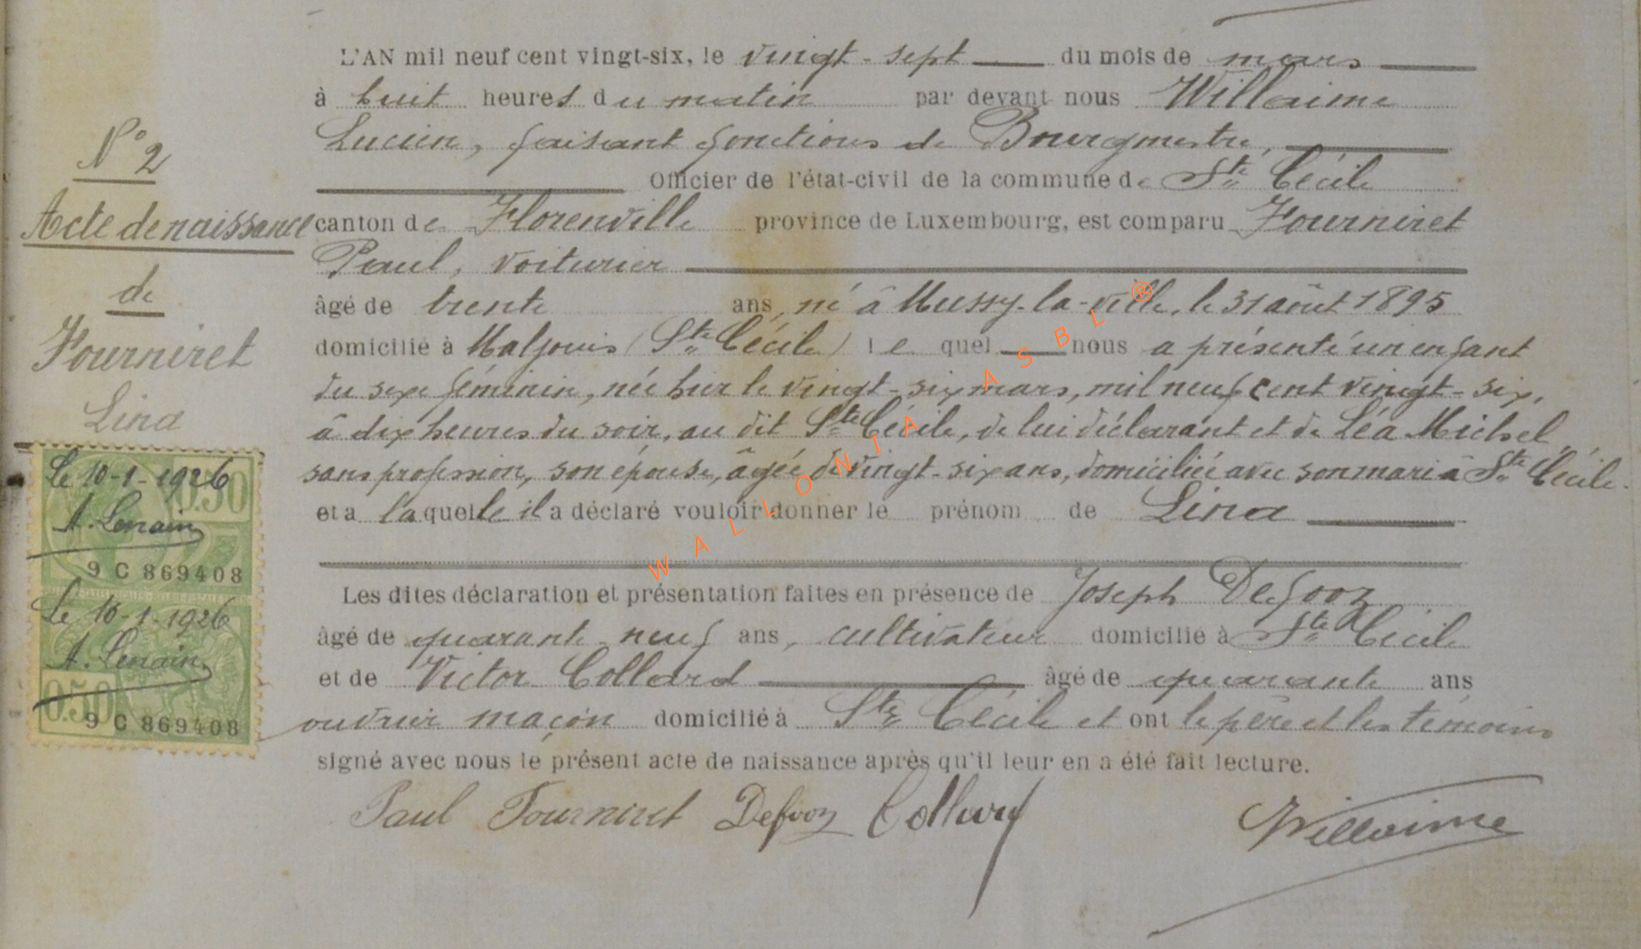 L'AN mil neuf cent vingt-six, le vingt-sept du mois de mars
à huit heures du matin par devant nous Willaime
Lucien, faisant fonctions de Bourgmestre,
Officier de l'état-civil de la commune de Ste Cécile
canton de Florenville province de Luxembourg, est comparu Fourniret
Paul, voiturier
âgé de trente ans, né à Mussy-la-ville, le 31 août 1895
domicilié à (Ste Cécile) lequel nous a présenté un enfant
du sexe féminin, née hier le vingt-six mars, mil neuf cent vingt-six,
à dix heures du soir, au dit Ste Cécile, de lui déclarant et de Léa Michel,
sans profession, son épouse, âgée de vingt-six ans, domiciliée avec son mari à Ste Cécile.
et a laquelle il a déclaré vouloir donner le prénom de Lina
Les dites déclaration et présentation faites en présence de Joseph Defooz
âgé de quarante-neuf ans, cultivateur domicilié à Ste Cécile
et de Victor Collard âgé de quarante ans
ouvrier maçon domicilié à Ste Cécile et ont le père et les témoins
signé avec nous le présent acte de naissance après qu'il leur en a été fait lecture.
Paul Fourniret Defooz Collard Willaime
N° 2
Acte de naissance
de
Fourniret
Lina
Le 10-1-1926
0.50
A. Lenain
9 C 869408
Le 10-1-1926
A. Lenain
0.50
9 C 869408
WALLONIA ASBL ®